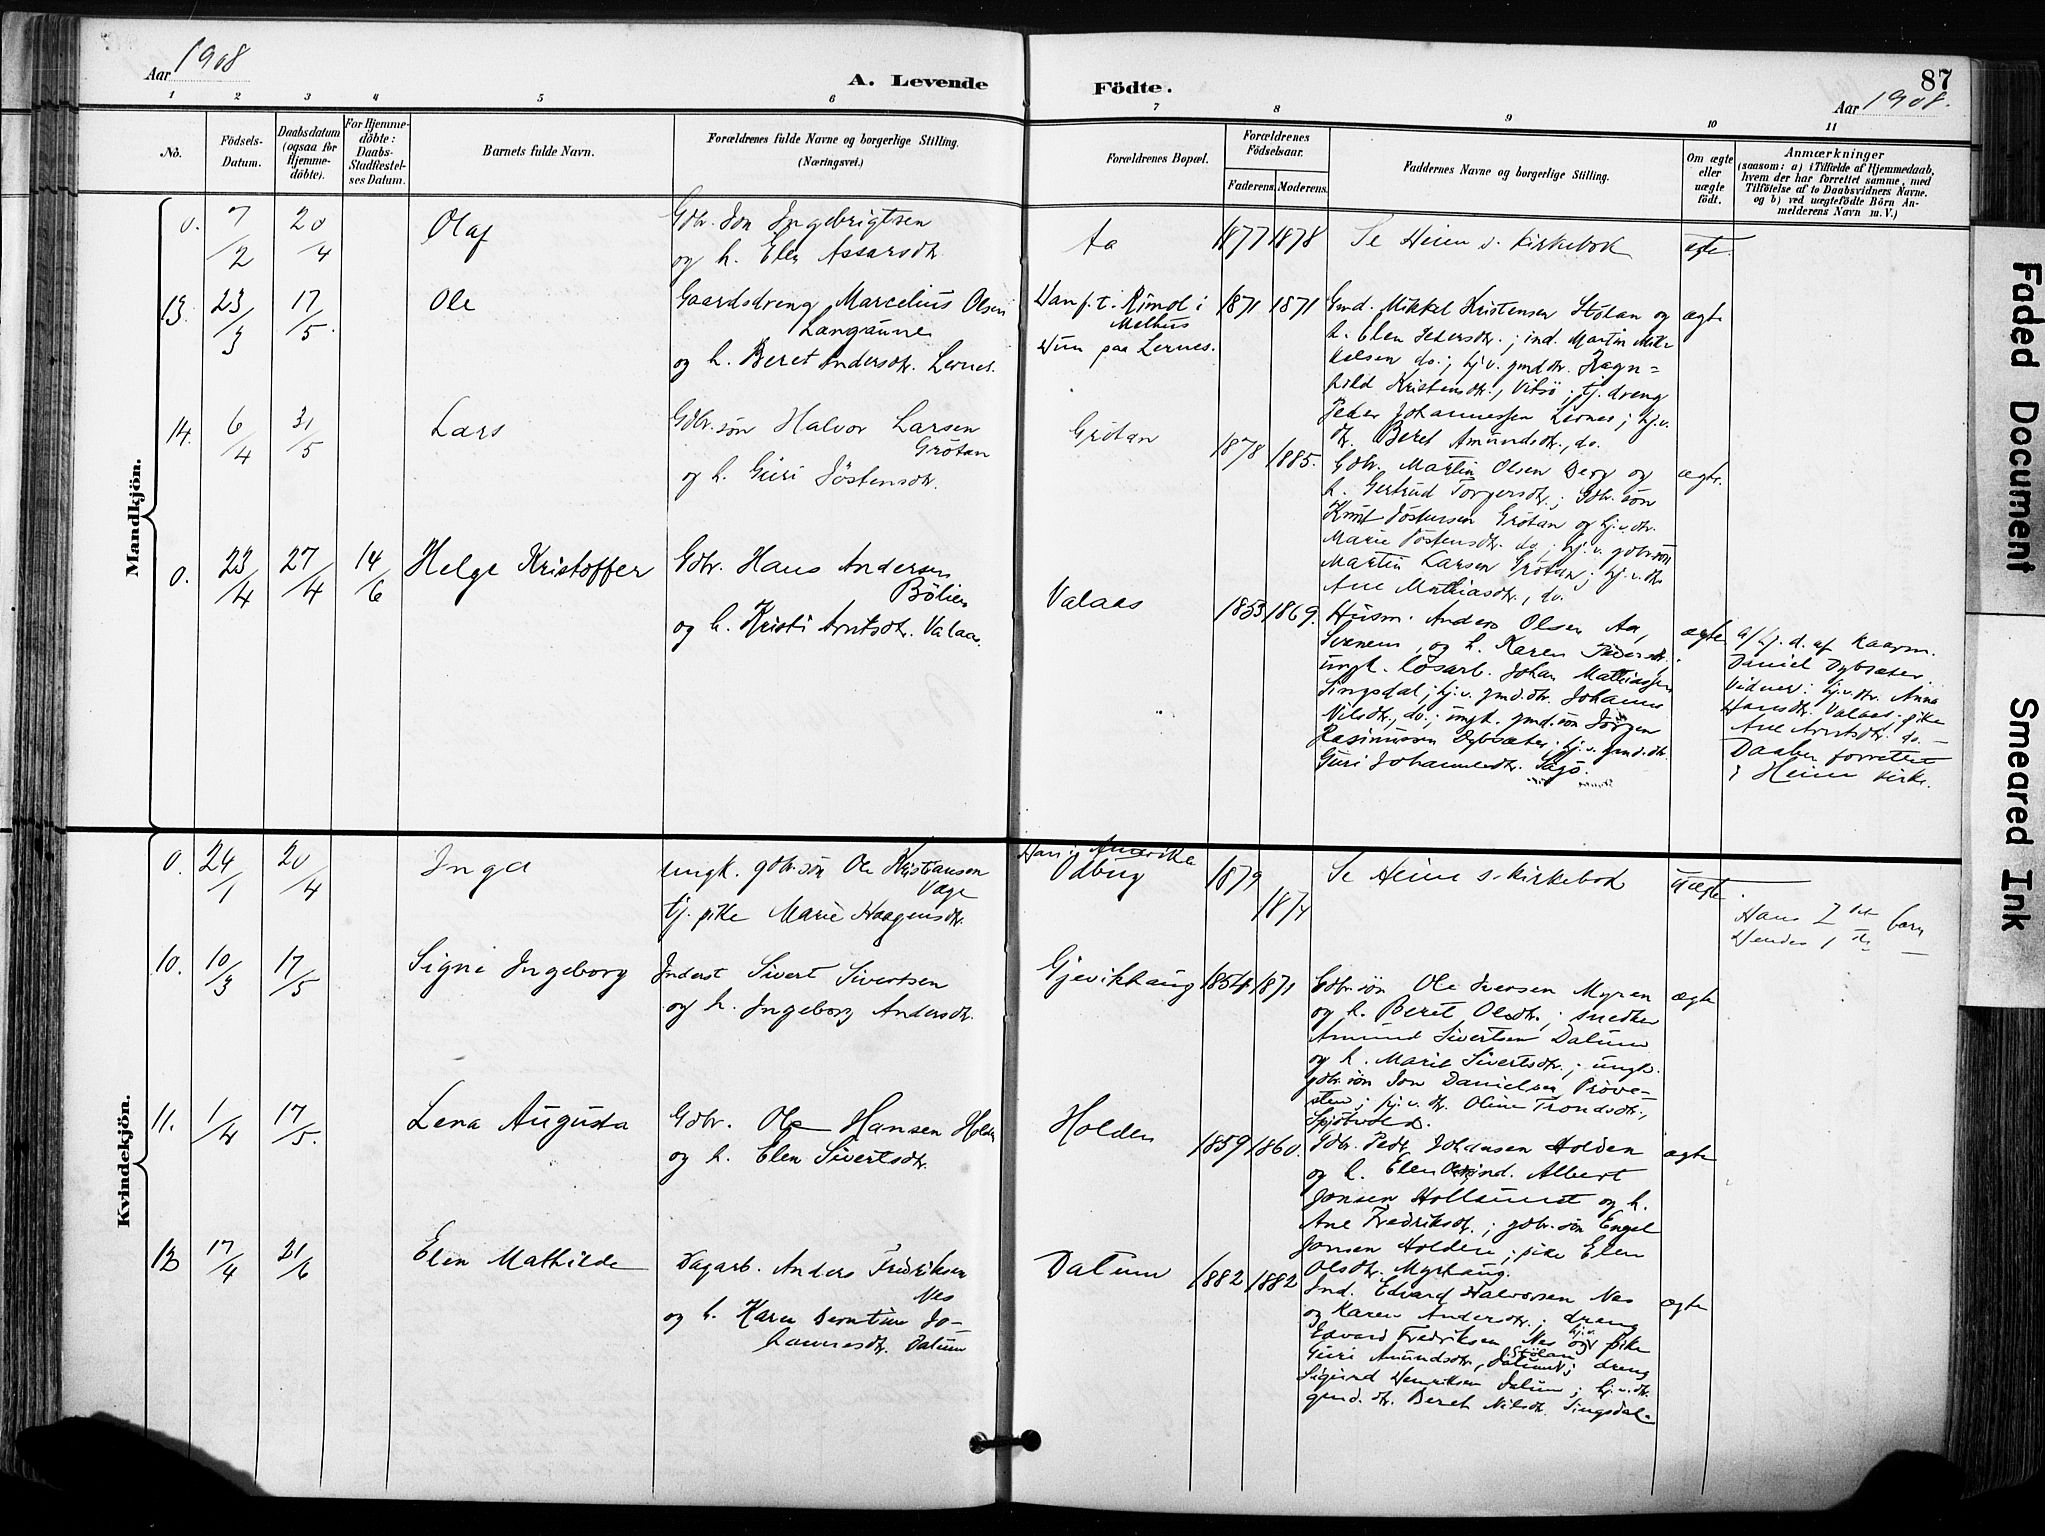 Aar 1908
A. Levende
Födte.
87
Aar 1908.
1 2 3 4 5 6 7 8 9 10 11
No.
Födsels-Datum.
Daabsdatum (ogsaa for Hjemme-döbte).
For Hjemme-döbte: Daabs-Stadfæstel-ses Datum.
Barnets fulde Navn.
Forældrenes fulde Navne og borgerlige Stilling.
(Næringsvei.)
Forældrenes Bopæl.
Forældrenes Födselsaar.
Faderens. Moderens.
Faddernes Navne og borgerlige Stilling.
Om ægte eller uægte födt.
Anmærkninger
(saasom: a) i Tilfælde af Hjemmedaab,
hvem der har forrettet samme, med
Tilföielse af to Daabsvidners Navne.
og b) ved uægtefödte Börn An-
melderens Navn m. V.)
Mandkjön.
0. 7/2 20/4 Olaf
Gdbr. Jon Ingebrigtsen
og h. Elen Assarsdtr.
Aa 1877 1878 Se Heim s. kirkebok ægte
13. 23/3 17/5. Ole
Gaardsdreng Marcelius Olsen
Langaune
og h. Beret Andersdtr. Lernes.
Han p.t. Rimol i
Melhus
Hun paa Lernes.
1871 1871
Gmd. Mikkel Kristensen Stölan og
h. Elen Pedersdtr.; ind. Martin Mik-
kelsen do.; hj.v. gmd.dtr. Ragn-
hild Kristensdtr., Vitsö; tj. dreng
Peder Johannessen Lernes; hj.v.
dtr. Beret Amundsdtr., do.
ægte
14. 6/4 31/5 Lars
Gdbr. sön Halvor Larsen
Grötan
og h. Guri Jöstensdtr.
Grötan 1878 1885.
Gdbr. Martin Olsen Berg og
h. Gertrud Torgersdtr.; Gdbr. sön
Knut Jöstensen Grötan og hj.v. dtr.
Marie Jöstensdtr. do; hj.v. gdbr.sön
Martin Larsen Grötan; hj.v. dtr.
Ane Mathiasdtr., do.
ægte.
0. 23/4 27/4 14/6 Helge Kristoffer
Gdbr. Hans Andersen
Bölien
og h. Kristi Arntsdtr. Valaas.
Valaas 1853 1869.
Husm. Anders Olsen Aa,
Svanem, og h. Karen Pedersdtr.;
ungk. lösarb. Johan Mathiassen
Singsdal; hj.v. gmd.dtr. Johanna
Nilsdtr., do.; ungk. gmd.sön Jörgen
Rasmussen Dybsæter; hj.v. gmd.dtr.
Guri Johannesdtr.
ægte
a/ hj. d. af kaarm.
Daniel Dybsæter.
Vidner: hj.v. dtr. Anna
Hansdtr. Valaas; pike
Ane Arntsdtr. do. –
Daaben forrettet
i Heim kirke.
Kvindekjön.
0. 24/1 20/4 Inga
ungk. gdbr. sön Ole Kristiansen
Vage
tj. pike Marie Haagensdtr.
Han i Amerika
Odbug
1879
1874
Se Heim s. kirkebok uægte
Hans 2det barn
Hendes 1 do
10. 10/3 17/5 Signe Ingeborg
Inderst Sivert Sivertsen
og h. Ingeborg Andersdtr.
Gjevikhaug 1854 1871
Gdbr. sön Ole Iversen Myren
og h. Beret Olsdtr.; snedker
Amund Sivertsen Dalum
og h. Marit Sivertsdtr.; ungk.
gdbr. sön Jon Danielsen Pröve-
sten; hj.v. dtr. Oline Trondsdtr.,
Spjötvold.
ægte
11. 1/4 17/5. Lena Augusta
Gdbr. Ole Hansen Holden
og h. Elen Sivertsdtr.
Holden 1859 1860.
Gdbr. Peder Johansen Holden
og h. Elen Olsdtr.; ind. Albert
Jonsen Hollamot og h.
Ane Fredriksdtr.; gdbr. sön Engel
Jonsen Holden; pike Elen
Olsdtr. Myrhaug.
ægte
12 17/4 21/6 Elen Mathilde
Dagarb. Anders Fredriksen
Nes
og h. Karen Berntine Jo-
hannesdtr. Dalum
Dalum 1882 1882
Ind. Edvard Halvorsen Nes
og Karen Andersdtr.; dreng
Edvard Fredriksen Nes og hj.v. pike
Guri Amundsdtr, Stölan, dreng
Sigurd Henriksen Dalum; hj.v. dtr.
gmd. dtr. Beret Nilsdtr. Singsdal.
ægte
Faded Document
Smeared Ink